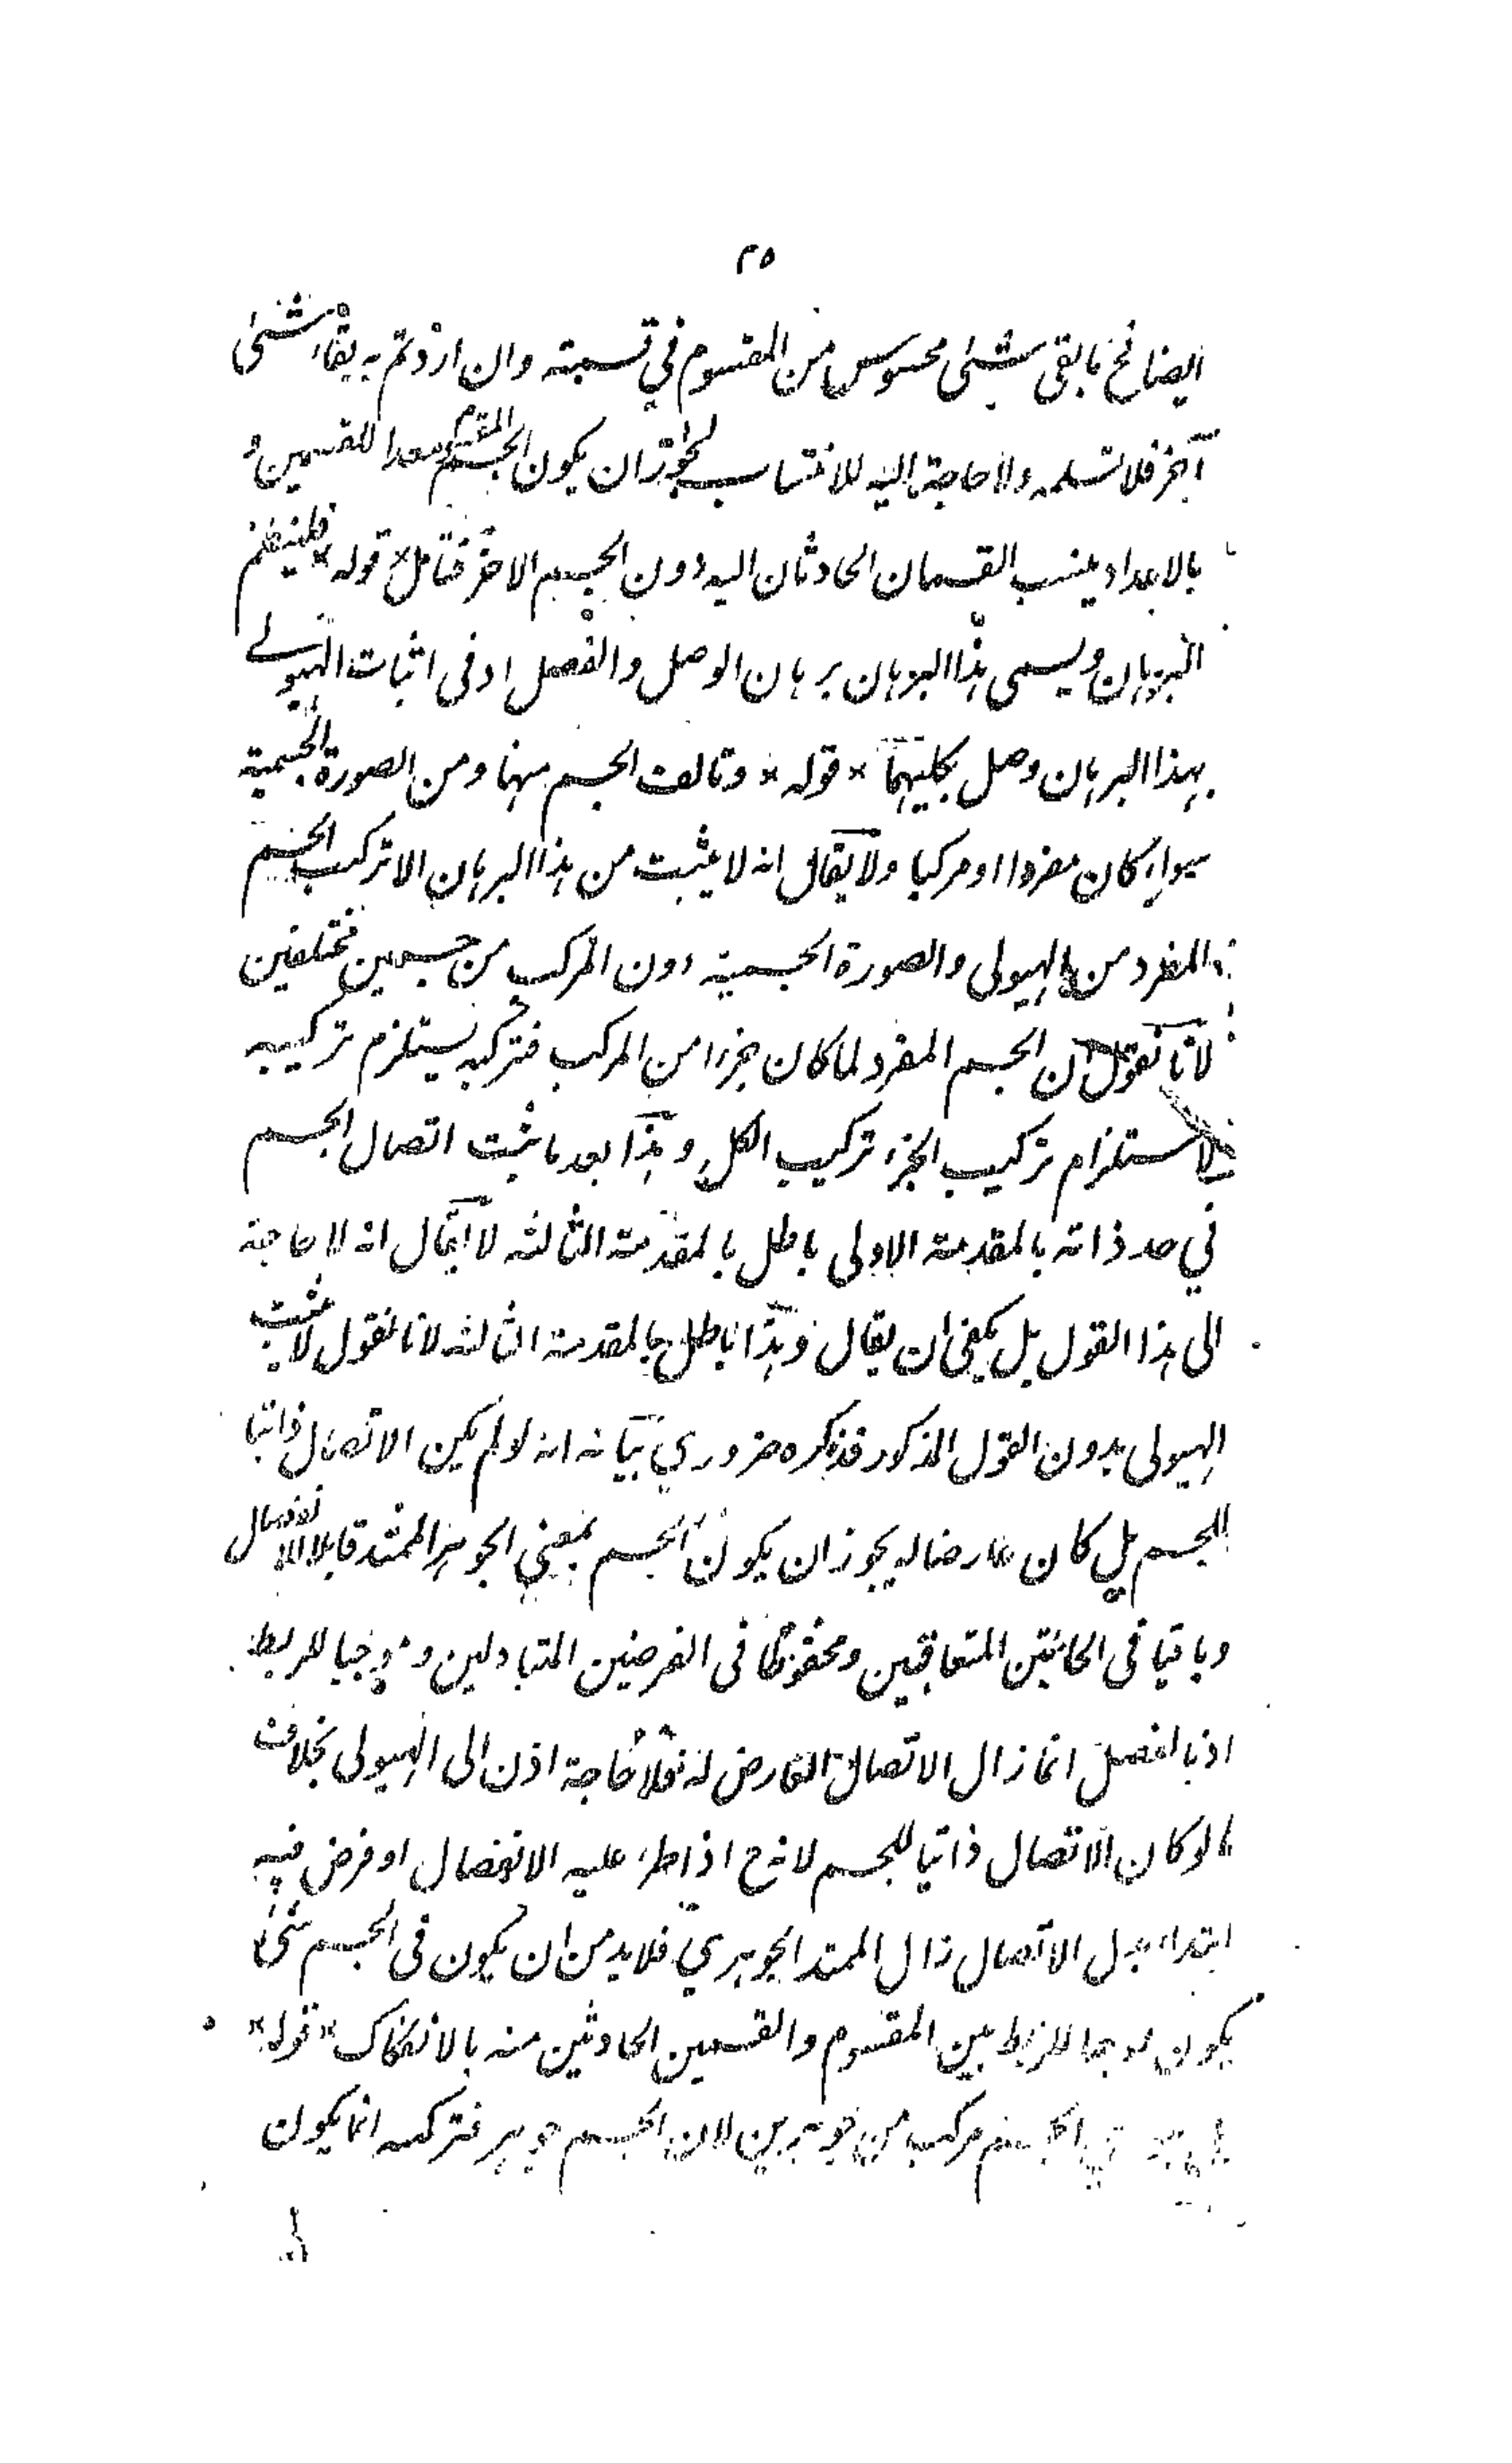 ٢٥
ايضا فح ما بقى شئى محسوس من المقسوم فى قسمته وان اردتم به بقاء شئى
آخر فلا نسلمه ولا حاجة اليه للانتساب لجواز ان يكون الجسم المقدم معدا للقسمين و
بالاعداد ينسب القسمان الحادثان اليه دون الجسم الاخر فتأمل * قوله * فلينظم
البرهان ويسمى هذا البرهان برهان الوصل والفصل اذ فى اثبات الهيولے
بهذا البرهان وصل بكليهما * قوله * وتالف الجسم منها ومن الصورة الجسمية
سواء كان مفردا او مركبا ولا يقال انه لا يثبت من هذا البرهان الا تركب الجسم
المفرد من الهيولى والصورة الجسمية دون المركب من جسمين مختلفين
لانا نقول ان الجسم المفرد لما كان جزءا من المركب فتركبه يستلزم تركيبه
لاستلزام تركيب الجزء تركيب الكل وهذا بعد ما ثبت اتصال الجسم
في حد ذاته بالمقدمة الاولى باطل بالمقدمة الثالثه لا يقال انه لا حاجة
الى هذا القول بل يكفى ان يقال وهذا باطل بالمقدمة الثالثه لانا نقول لا يثبت
الهيولى بدون القول المذكور فذكره ضروري بيانه انه لو لم يكن الاتصال ذاتيا
للجسم بل كان عارضا له يجوز ان يكون الجسم بمعنى الجوهر الممتد قابلا للانفصال
وباقيا فى الحالتين المتعاقبين ومحفوظا فى الفرضين المتبادلين وموجبا للربط
اذ بالفصل انما زال الاتصال العارض له فلا حاجة اذن الى الهيولى بخلاف
ما لو كان الاتصال ذاتيا للجسم لانه ح اذا طرء عليه الانفصال او فرض فيه
ابتداء بدل الاتصال زال الممتد الجوهري فلا بد من ان يكون فى الجسم شئ
يكون موجبا للربط بين المقسوم والقسمين الحادثين منه بالانفكاك * قوله *
الجسم مركب من جوهرين لان الجسم جوهر فتركبه انما يكون